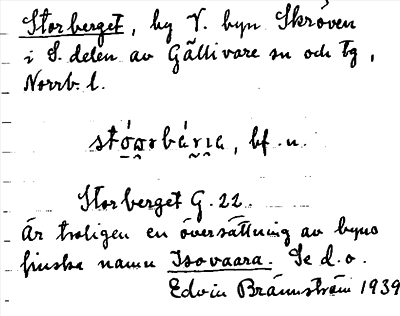 Storberget, bg V. byn Skröven
i S. delen av Gällivare sn och tg,
Norrb. l.
bf. n.
Storberget G. 22.
Är troligen en översättning av byns
finska namn Isovaara. Se d. o.
Edvin Brännström 1939